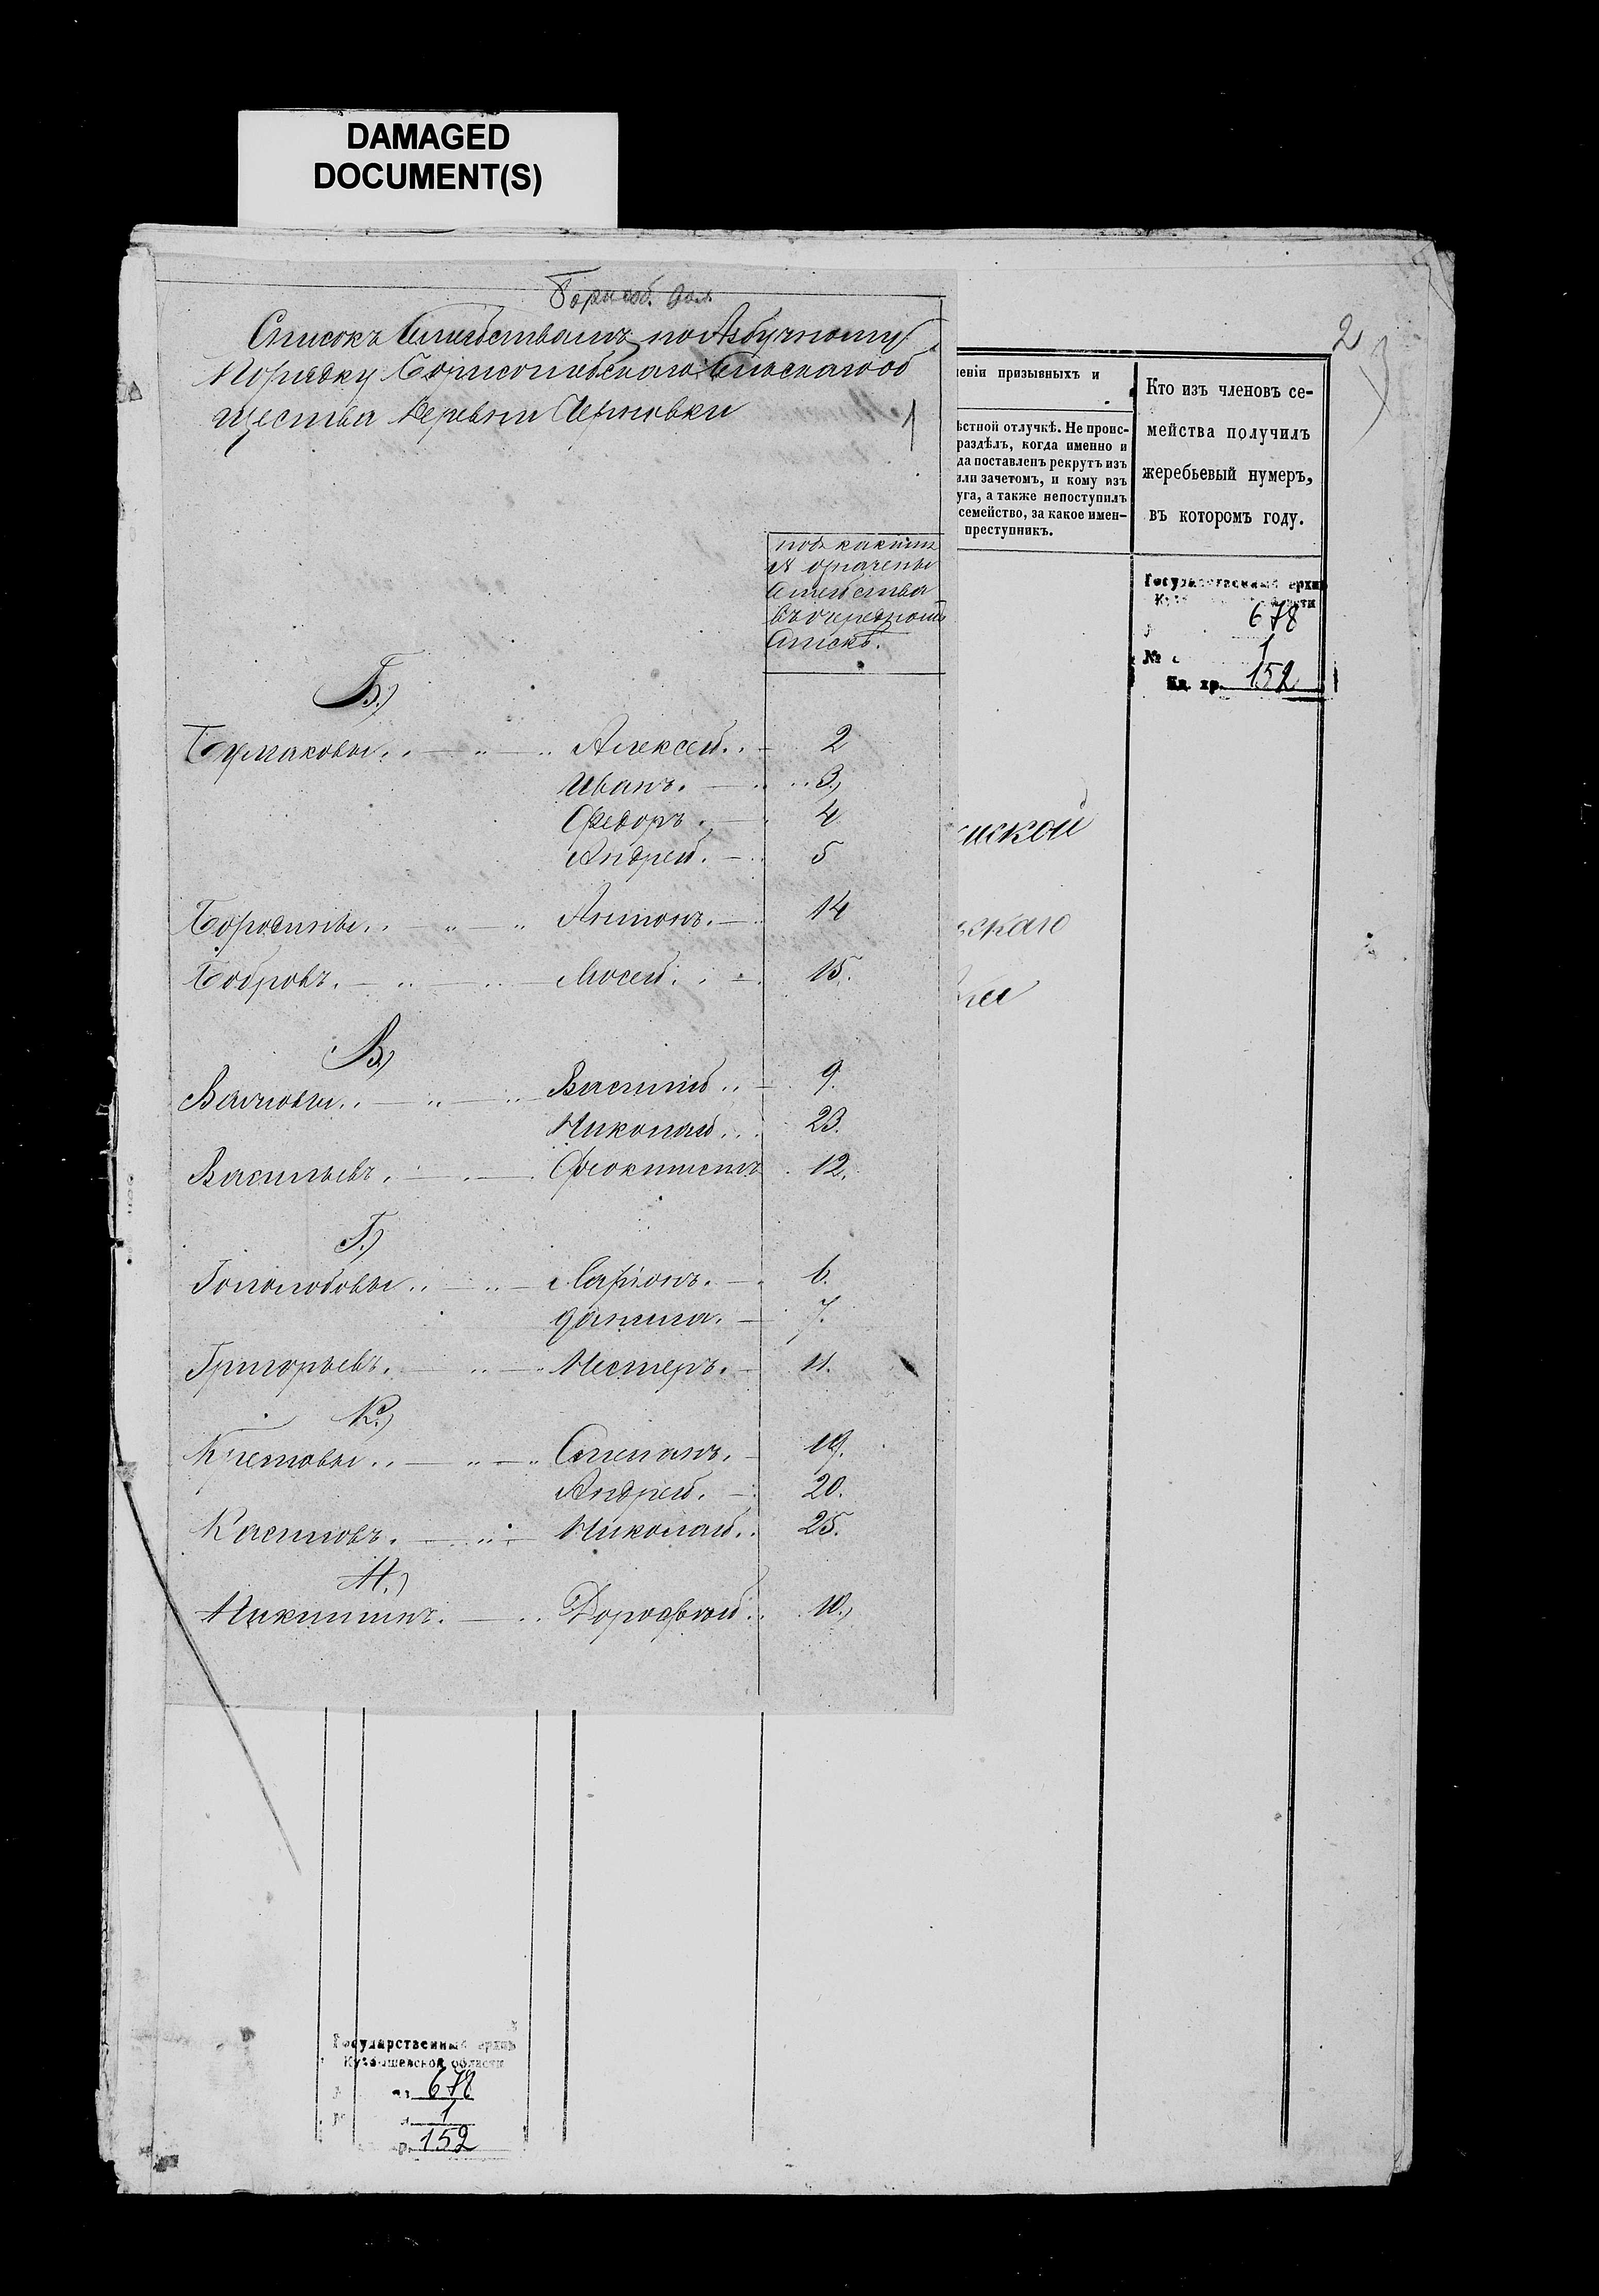 DAMAGED
DOCUMENT(S)
Списокъ Семѣйствамъ по Азбучному
Порядку Борисоглѣбскаго Сельскаго об
щества Деревни Черновки
1
подъ какимъ
№ означены
Семѣйства
въ очередномъ
Спискѣ.
Б.)
Булаковы. Алексей. 2
Иванъ. 3,
Федоръ. 4
Андрей. 5
Бородины. Антонъ. 14
Бобровъ. Мосей. 15.
В.)
Василий 9.
Николай 23.
Васильевъ. Феоктистъ 12.
Г.)
Гололобовы Ларіонъ. 6.
Данила. 7.
Григорьевъ. Нестеръ. 11.
К.)
Степанъ. 19.
Андрей. 20.
Касимовъ. Николай. 25.
Н.)
Никитинъ. Дорофей 10.,
2
леніи призывныхъ и
ѣстной отлучкѣ. Не проис-
раздѣлъ, когда именно и
да поставленъ рекрутъ изъ
или зачетомъ, и кому изъ
уга, а также непоступилъ
семейство, за какое имен-
преступникъ.
Кто изъ членовъ се-
мейства получилъ
жеребьевый нумеръ,
въ которомъ году.
Государственный архив
678
№ 1
Ед. хр. 152
ской
скаго
Государственный архив
Куйбышевской области
678
1
152